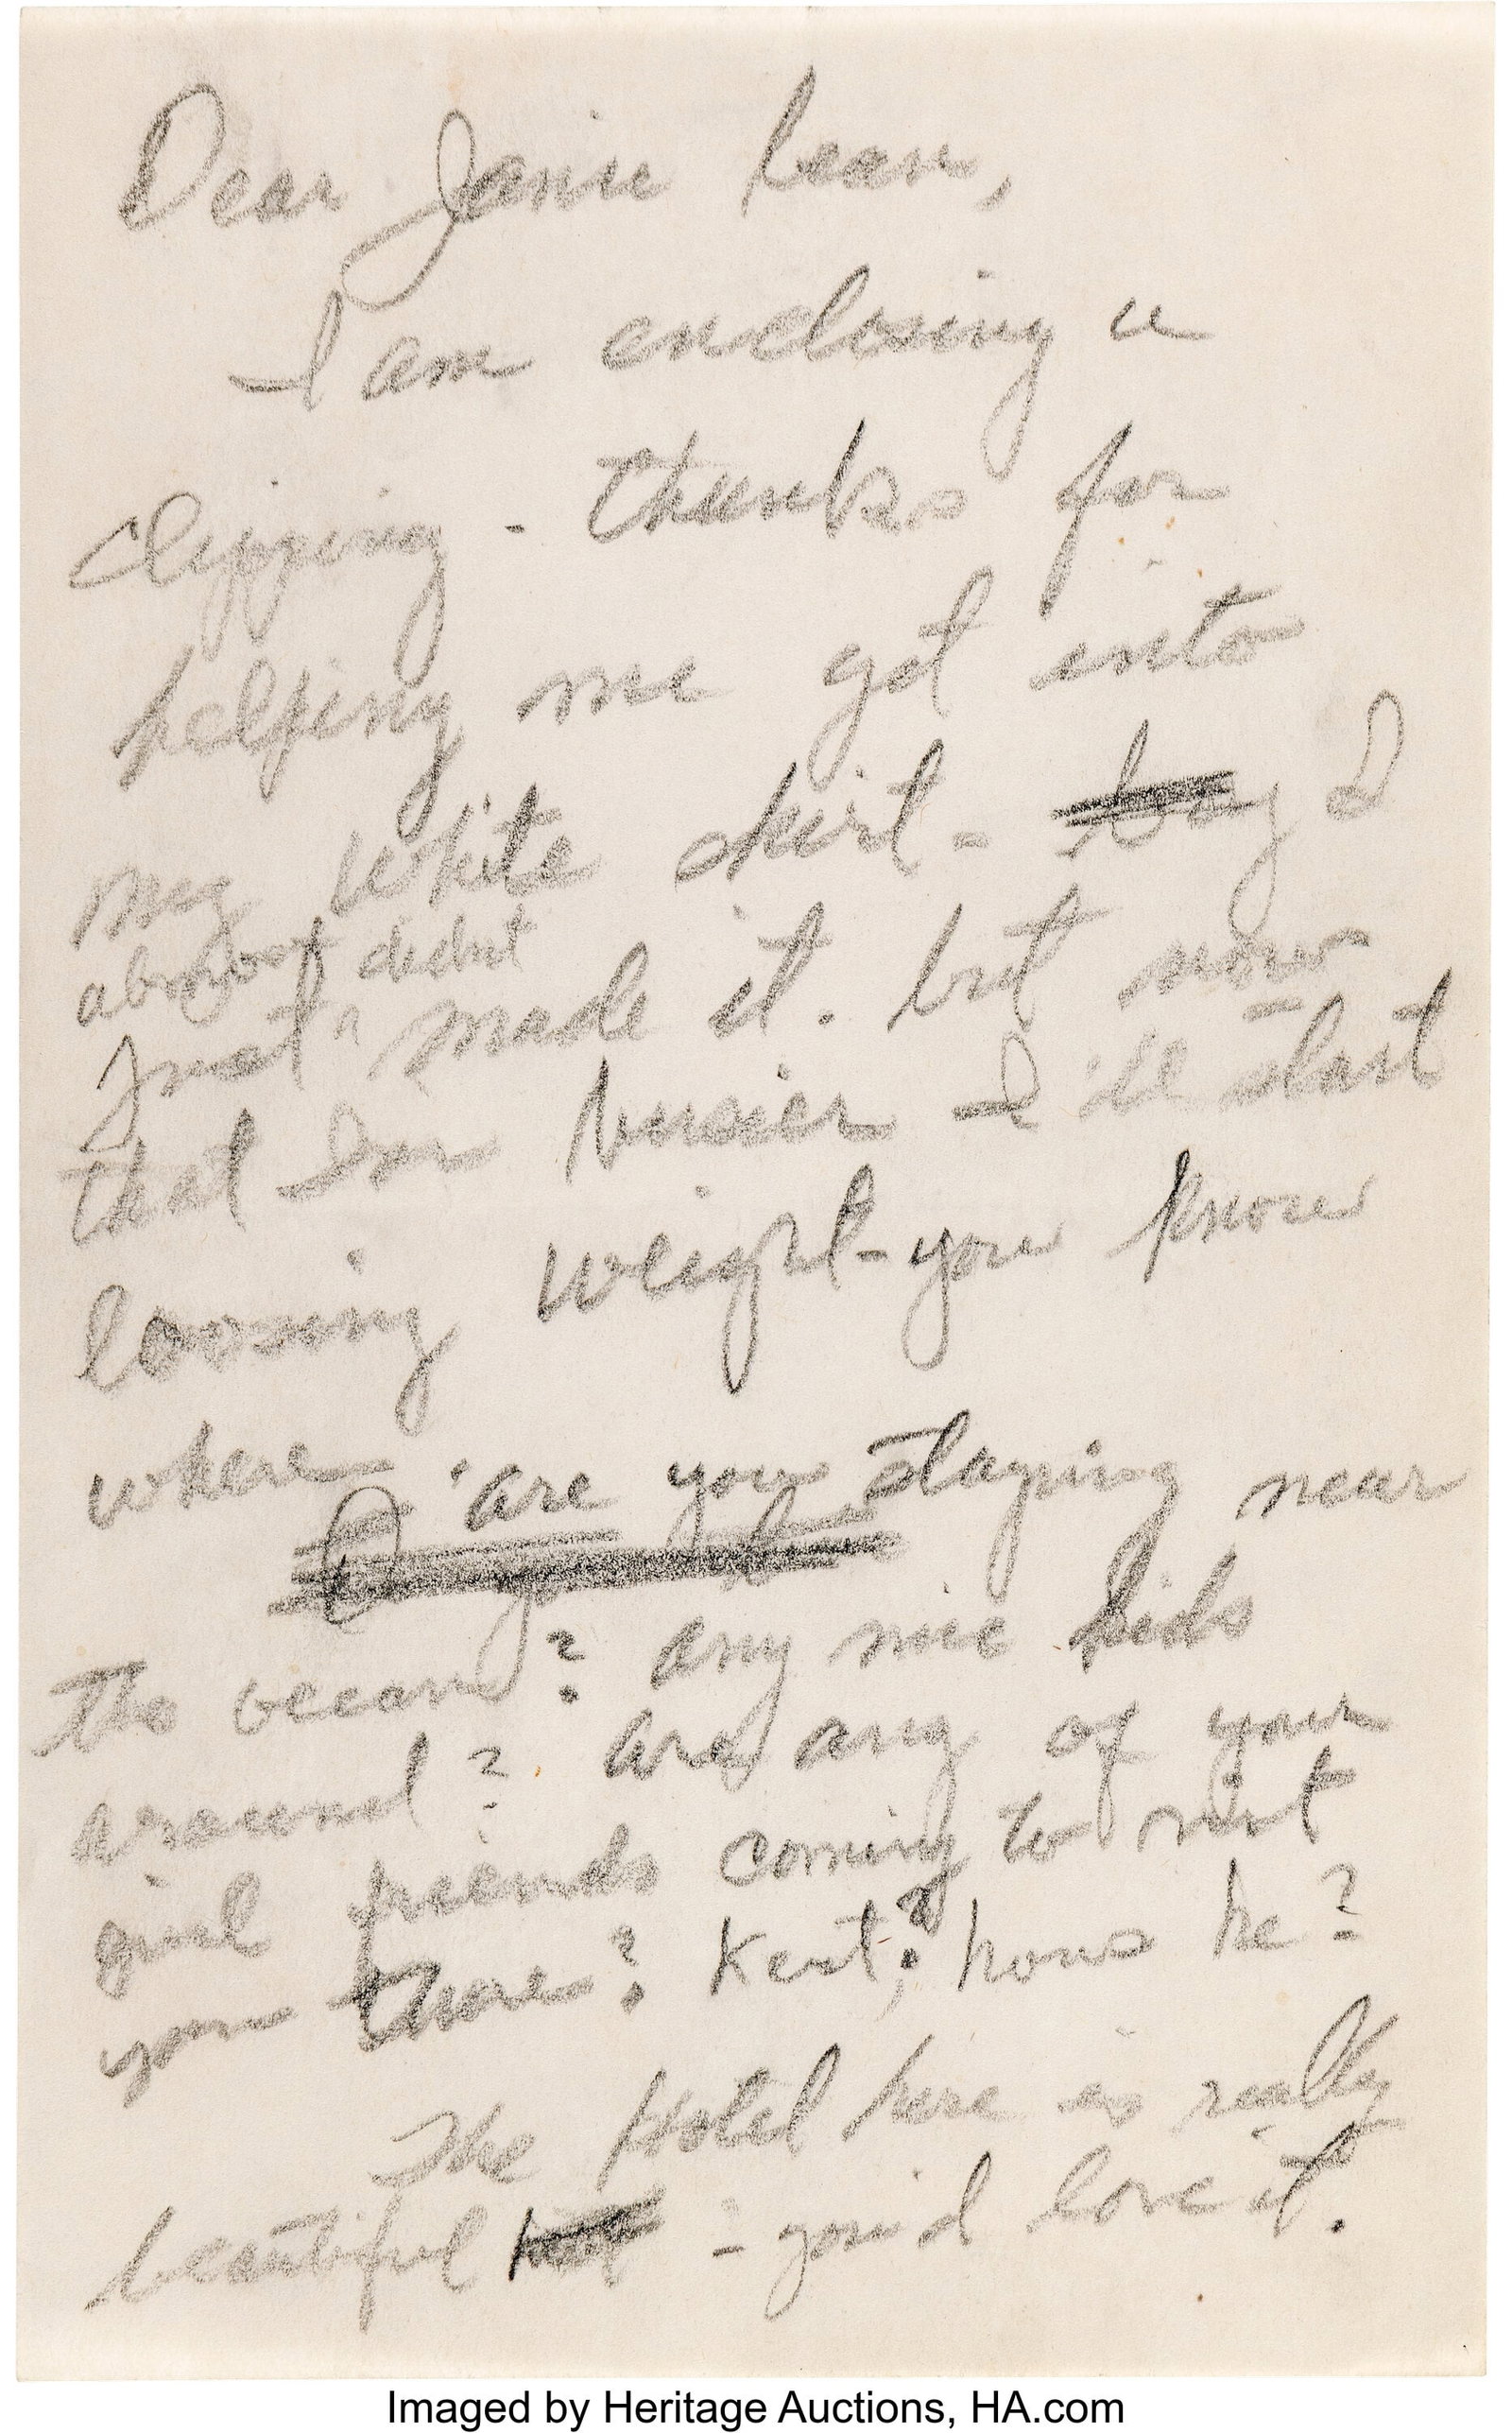 Dear Janie bean,
I am enclosing a
clipping - thanks for
helping me get into
my white shirt - boy I
almost didnt
Just made it. but now
that Im busier I'll start
loosing weight - you know
where are you staying near
the occean? any nice kids
around? are any of your
girl friends coming to visit
you there? Kent? hows he?
The Hotel here is really
beautiful - you'd love it.
Imaged by Heritage Auctions, HA.com